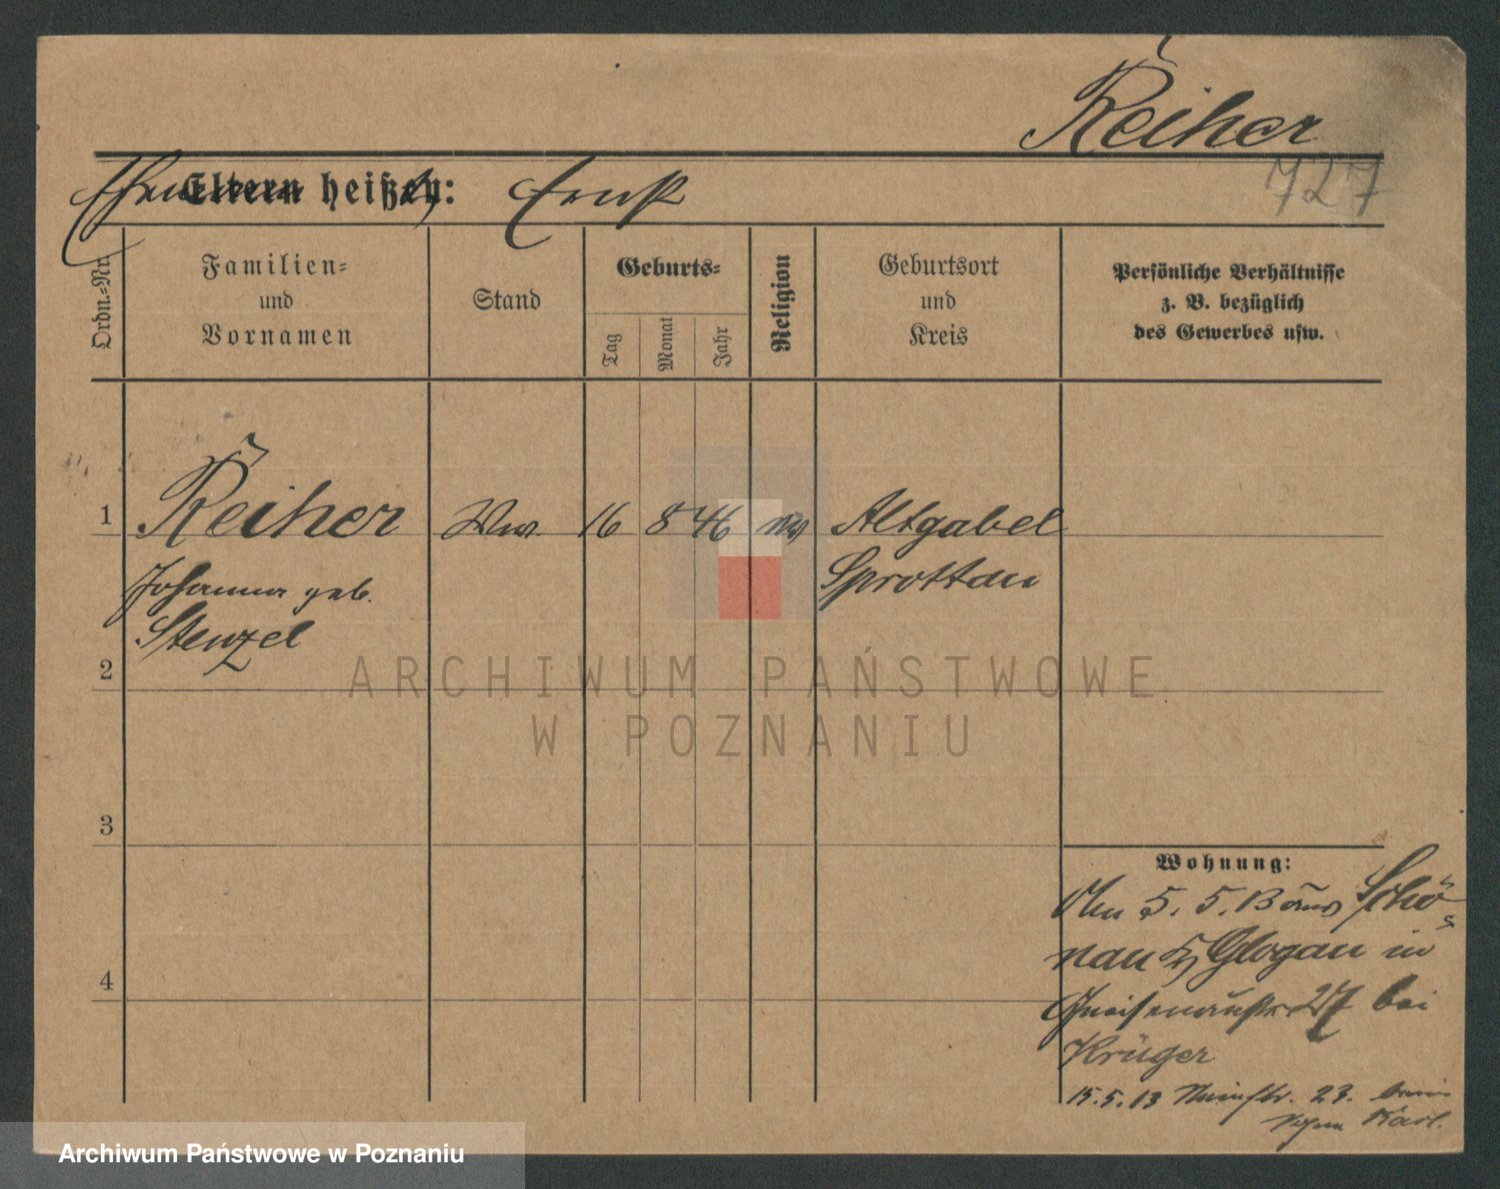 Reiher
727
Eltern heißen: Ernst
Ordn.=Nr.
Familien=
und
Vornamen
Stand
Geburts=
Tag
Monat
Jahr
Religion
Geburtsort
und
Kreis
Persönliche Verhältnisse
z. B. bezüglich
des Gewerbes usw.
1 Reiher Ww. 16 8 46 ev Altgabel
Johanna geb. Sprottau
Stenzel
2
3
4
Wohnung:
Am 5. 5. 13 aus Schö-
nau Kr Glogau in
Gneisenaustr 27 bei
Krüger
15.5.13 23. beim
Sohn Karl.
ARCHIWUM PAŃSTWOWE
W POZNANIU
Archiwum Państwowe w Poznaniu